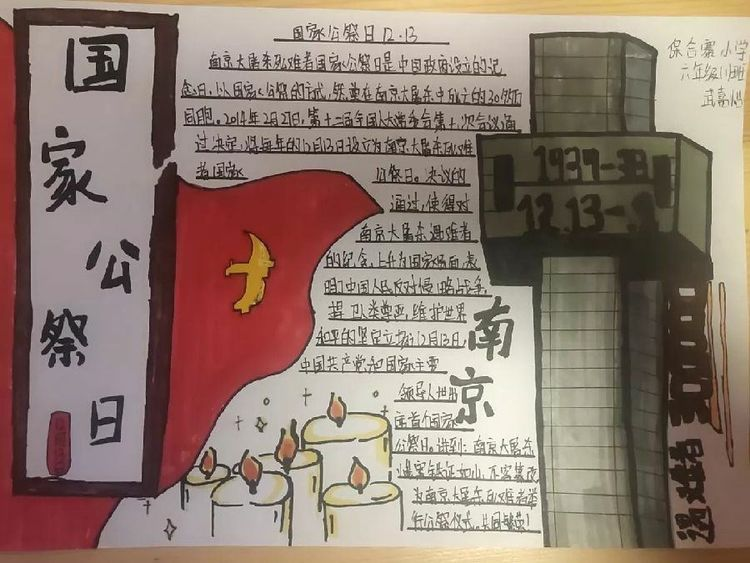 国家公祭日
国家公祭日 12.13
南京大屠杀死难者国家公祭日是中国政府设立的纪
念日,以国家公祭的方式,祭奠在南京大屠杀中死亡的30多万
同胞。2014年2月27日,第十二届全国人大常委会第七次会议通
过决定,将每年的12月13日设立为南京大屠杀死难
者国家
公祭日。决议的
通过,使得对
南京大屠杀遇难者
的纪念,上升为国家层面,表
明中国人民反对侵略战争,
捍卫人类尊严,维护世界
和平的坚定立场,12月13日,
中国共产党和国家主要
领导人出席
首个国家
公祭日。讲到:南京大屠杀
为南京大屠杀死难者举
行公祭仪式,共同
南京
1937-38
12.13-
遇难者
300000
保合寨小学
六年级
武嘉